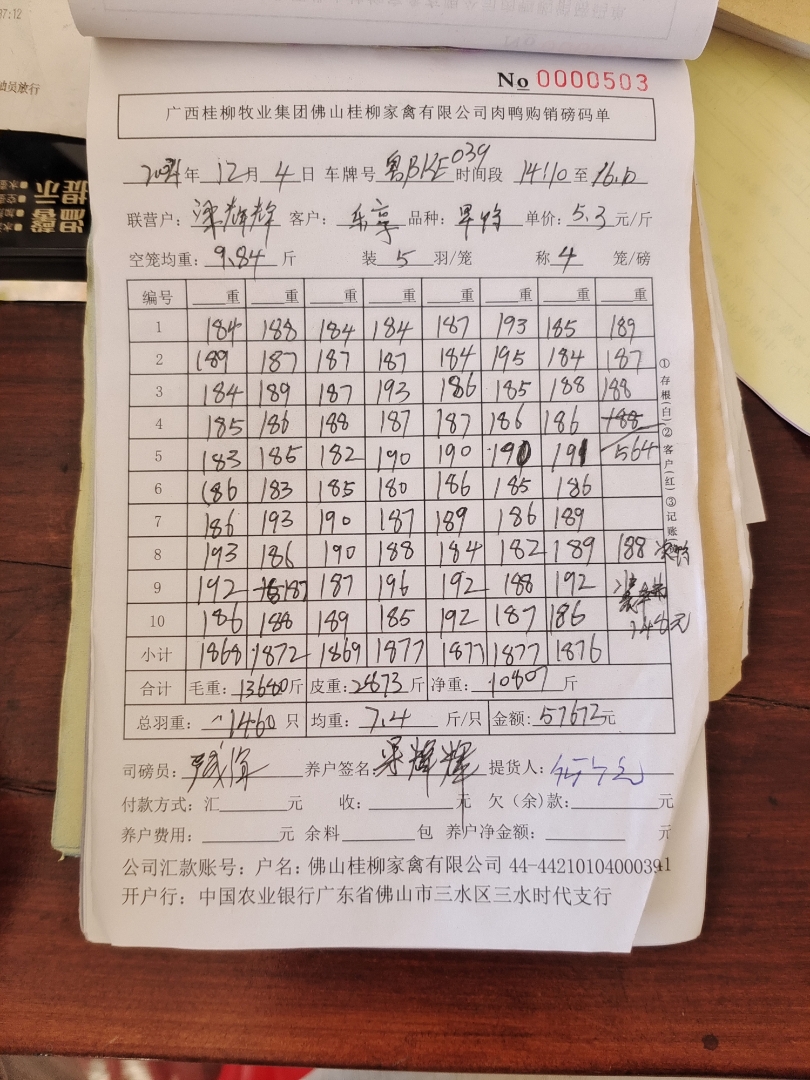 07:12
油员放行
No 0000503
广西桂柳牧业集团佛山桂柳家禽有限公司肉鸭购销磅码单
年 12 月 4 日 车牌号 粤BKE039 时间段 14:10 至 16:10
联营户: 梁辉辉 客户: 乐享 品种: 单价: 5.3 元/斤
空笼均重: 9.84 斤 装 5 羽/笼 称 4 笼/磅
编号 重 重 重 重 重 重 重 重
1 184 188 184 184 187 193 185 189
2 189 187 187 187 184 195 184 187
3 184 189 187 193 186 185 188 188
4 185 186 188 187 187 186 186 188
5 183 185 182 190 190 190 191 564
6 186 183 185 180 186 185 186
7 186 193 190 187 189 186 189
8 193 186 190 188 184 182 189 188
9 192 187 187 196 192 188 192
10 186 188 189 185 192 187 186
小计 1868 1872 1869 1877 1877 1877 1876
合计 毛重: 13680 斤 皮重: 2873 斤 净重: 10807 斤
总羽重: 1460 只 均重: 7.4 斤/只 金额: 57672 元
司磅员: 养户签名: 梁辉辉 提货人:
付款方式: 汇 元 收: 元 欠(余)款: 元
养户费用: 元 余料 包 养户净金额: 元
公司汇款账号: 户名: 佛山桂柳家禽有限公司 44-442101040003941
开户行: 中国农业银行广东省佛山市三水区三水时代支行
①存根(白)②客户(红)③记账
温馨提示